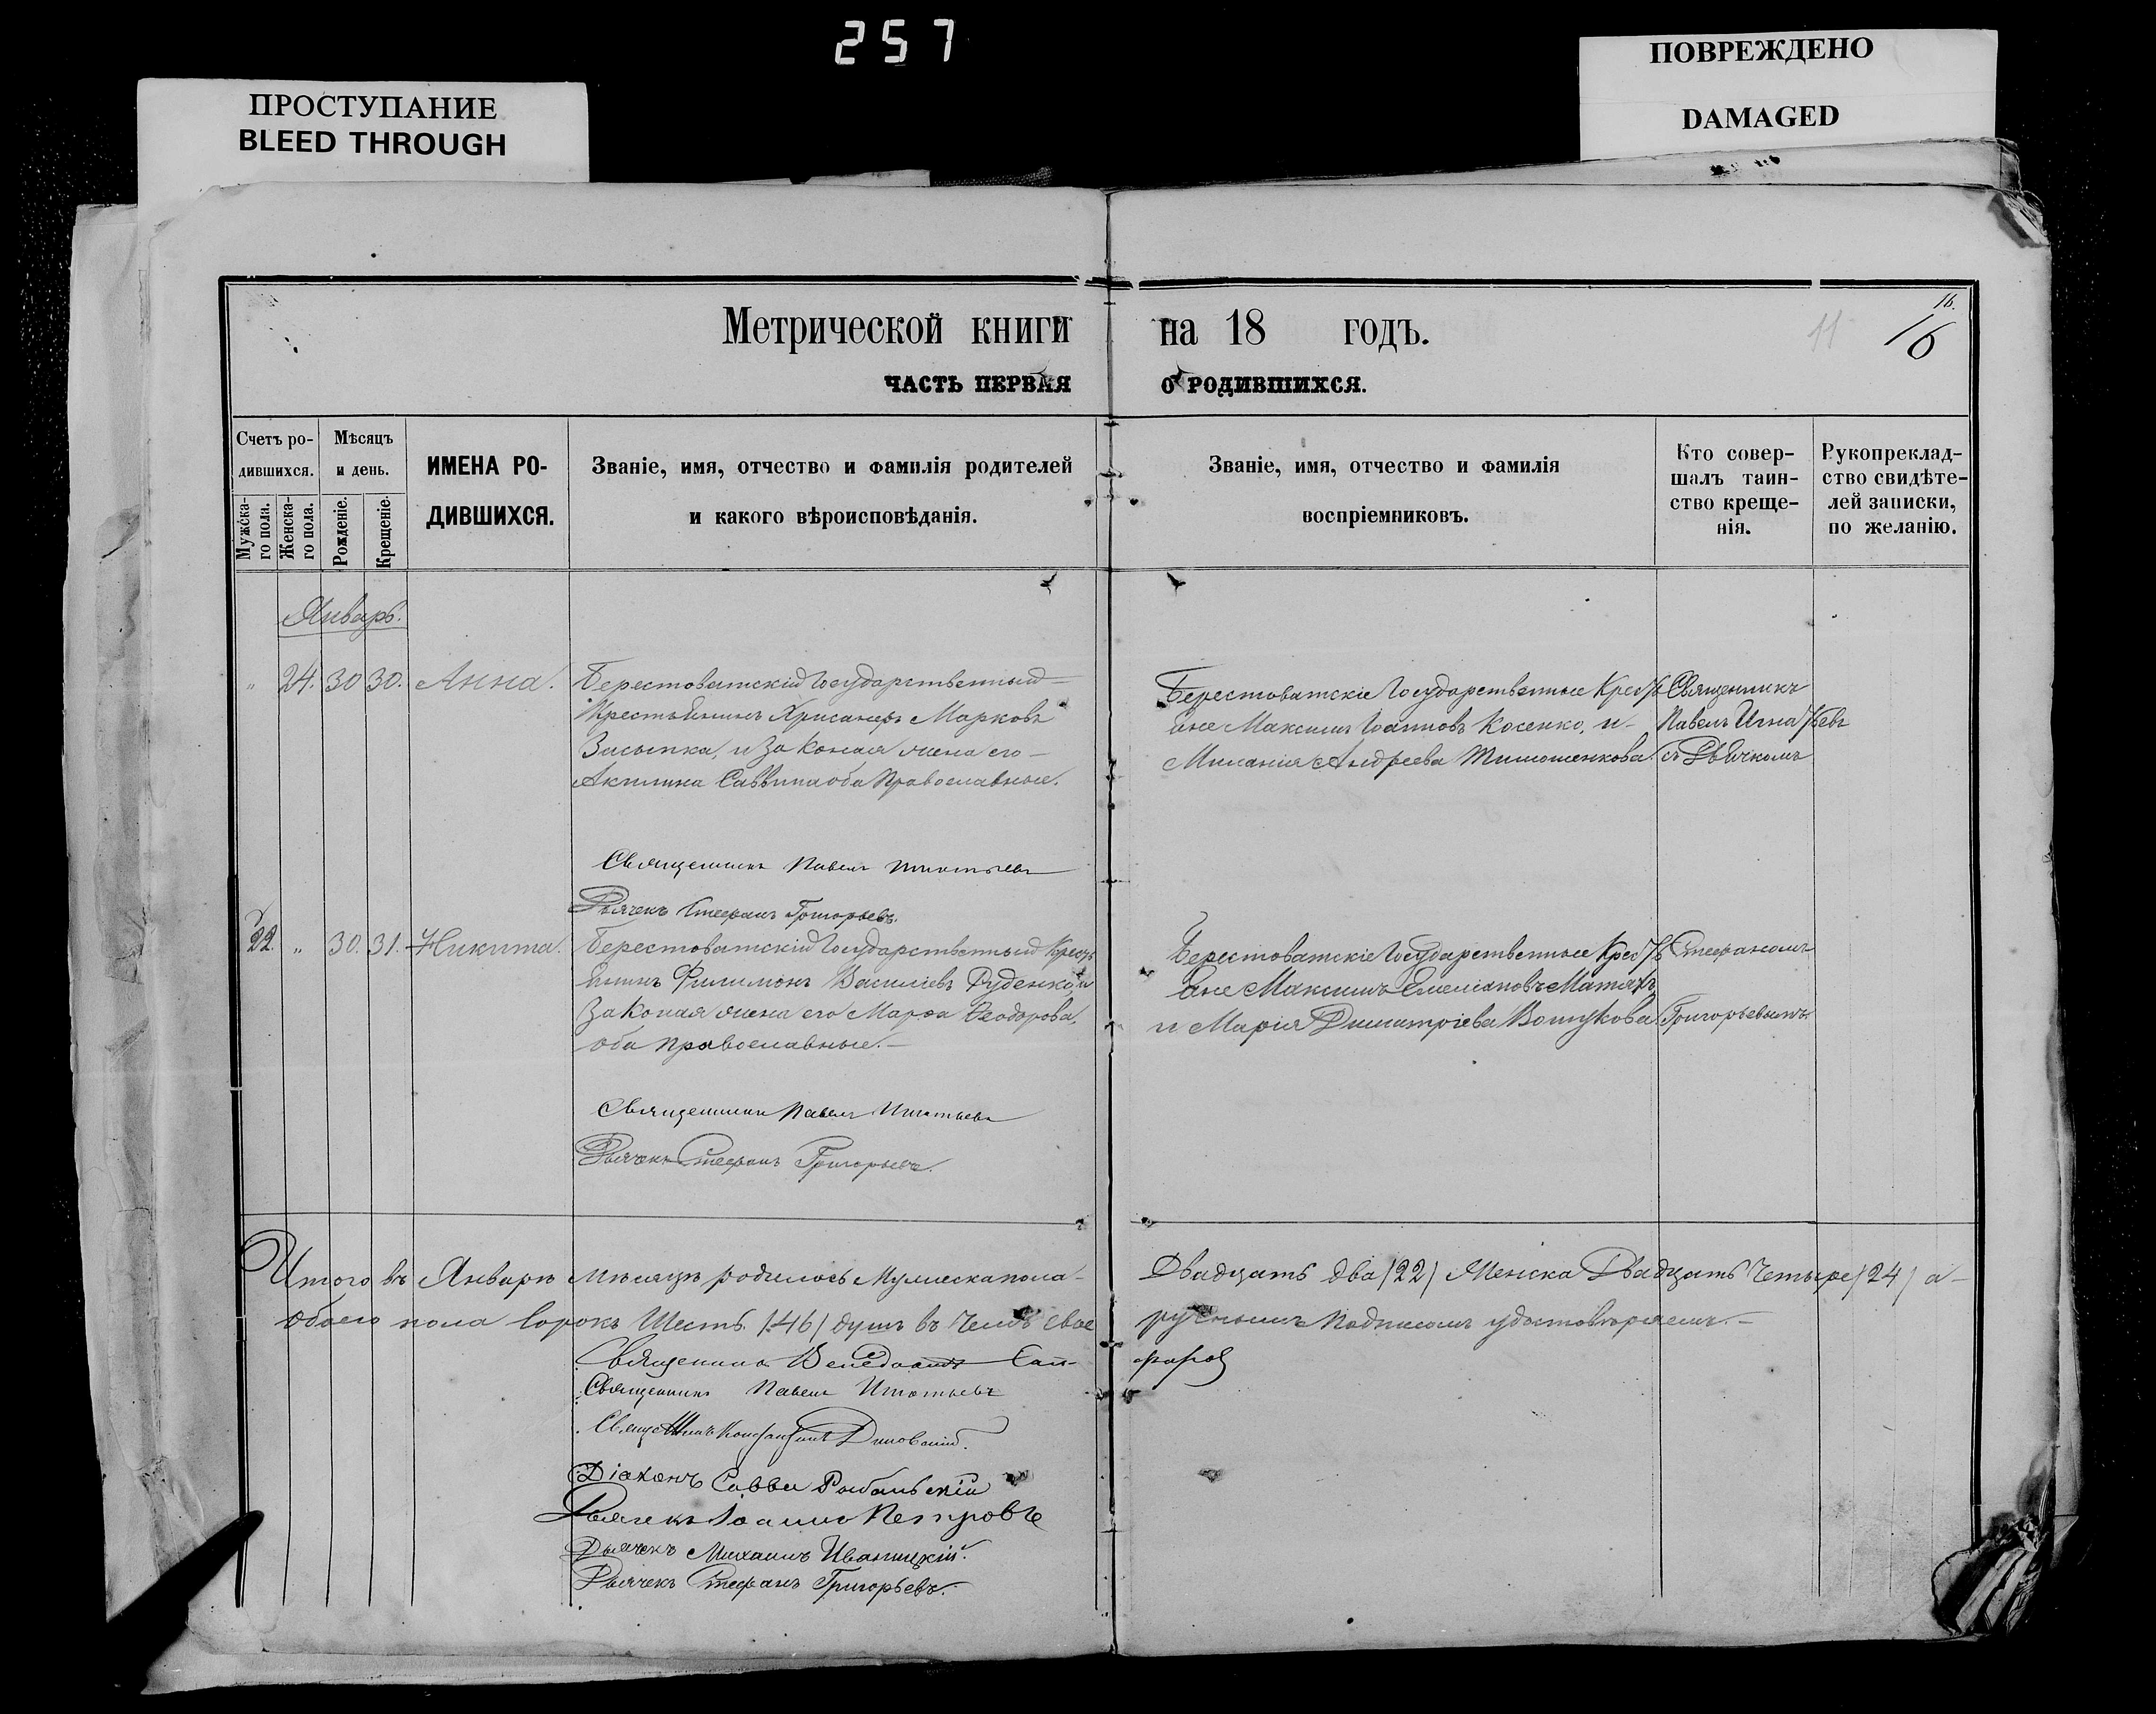 257
ПРОСТУПАНИЕ
BLEED THROUGH
ПОВРЕЖДЕНО
DAMAGED
16.
11
16
Метрической книги на 18 годъ.
ЧАСТЬ ПЕРВАЯ О РОДИВШИХСЯ.
Счетъ ро-
дившихся.
Мужска-
го пола.
Женска-
го пола.
Мѣсяцъ
и день.
Рожденіе.
Крещеніе.
ИМЕНА РО-
ДИВШИХСЯ.
Званіе, имя, отчество и фамилія родителей
и какого вѣроисповѣданія.
Званіе, имя, отчество и фамилія
воспріемниковъ.
Кто совер-
шалъ таин-
ство креще-
нія.
Рукоприклад-
ство свидѣте-
лей записки,
по желанію.
Январь.
" 24. 30 30. Анна.
Берестоватскій Государственный
Крестьянинъ Хрисанфъ Марковъ
Засыпка, и законая жена его
Акилина Саввина оба Православные.
Берестоватскіе Государственные Кресть
яне Максимъ Іоанновъ Косенко, и
Миланія Андреева Тимошенкова.
Священникъ
Павелъ Игнатьевъ
съ Дьячкомъ
Священникъ Павелъ Игнатьевъ
Дьячекъ Стефанъ Григорьевъ.
22. " 30. 31. Никита.
Берестоватскій Государственный Кресть
янинъ Филимонъ Василіевъ Руденко, и
Законая жена его Марѳа Ѳеодорова,
оба православные.
Берестоватскіе Государственные Кресть
яне Максимъ Емеліановъ
и Марія Димитріева
Стефаномъ
Григорьевымъ.
Священникъ Павелъ Игнатьевъ
Дьячекъ Стефанъ Григорьевъ.
Итого въ Январѣ мѣсяцѣ родилось Мужеска пола Двадцать два /22/ Женска Двадцать четыре /24/ а
обоего пола Сорокъ Шесть /46/ душъ въ чемъ свое ручнымъ подписомъ удостовѣряемъ.
Священникъ
Священникъ Павелъ Игнатьевъ
Священникъ Константинъ
Діаконъ Савва Рыбальскій
Дьячекъ Іоаннъ Петровъ
Дьячекъ Михаилъ Иваницкій.
Дьячекъ Стефанъ Григорьевъ.